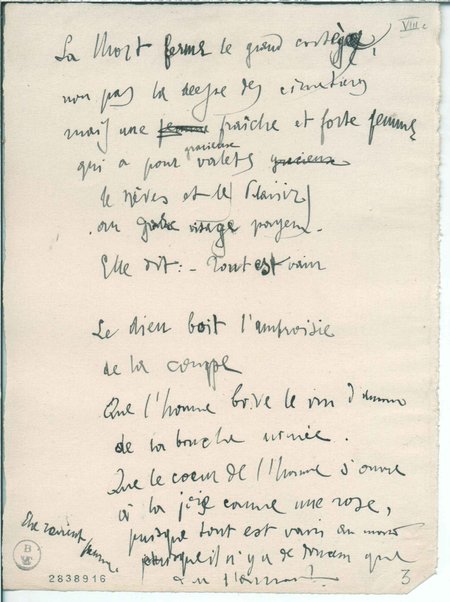 VIIIe
La Mort ferme le grand cortège,
non pas la déesse des cimetières
mais une femme fraîche et forte femme,
gracieuse
qui a pour valets gracieux
le Rêves et le Plaisir
au visage payen.
Elle dit : - Tout est vain
Le dieu boit l'ambroisie
de la coupe
Que l'homme boive le vin d'amour
de la bouche
Que le coeur de l'homme s'ouvre
à la joie comme une rose,
puisque tout est vain au monde
puisqu'il n'y a de que
Elle
B
2838916
3